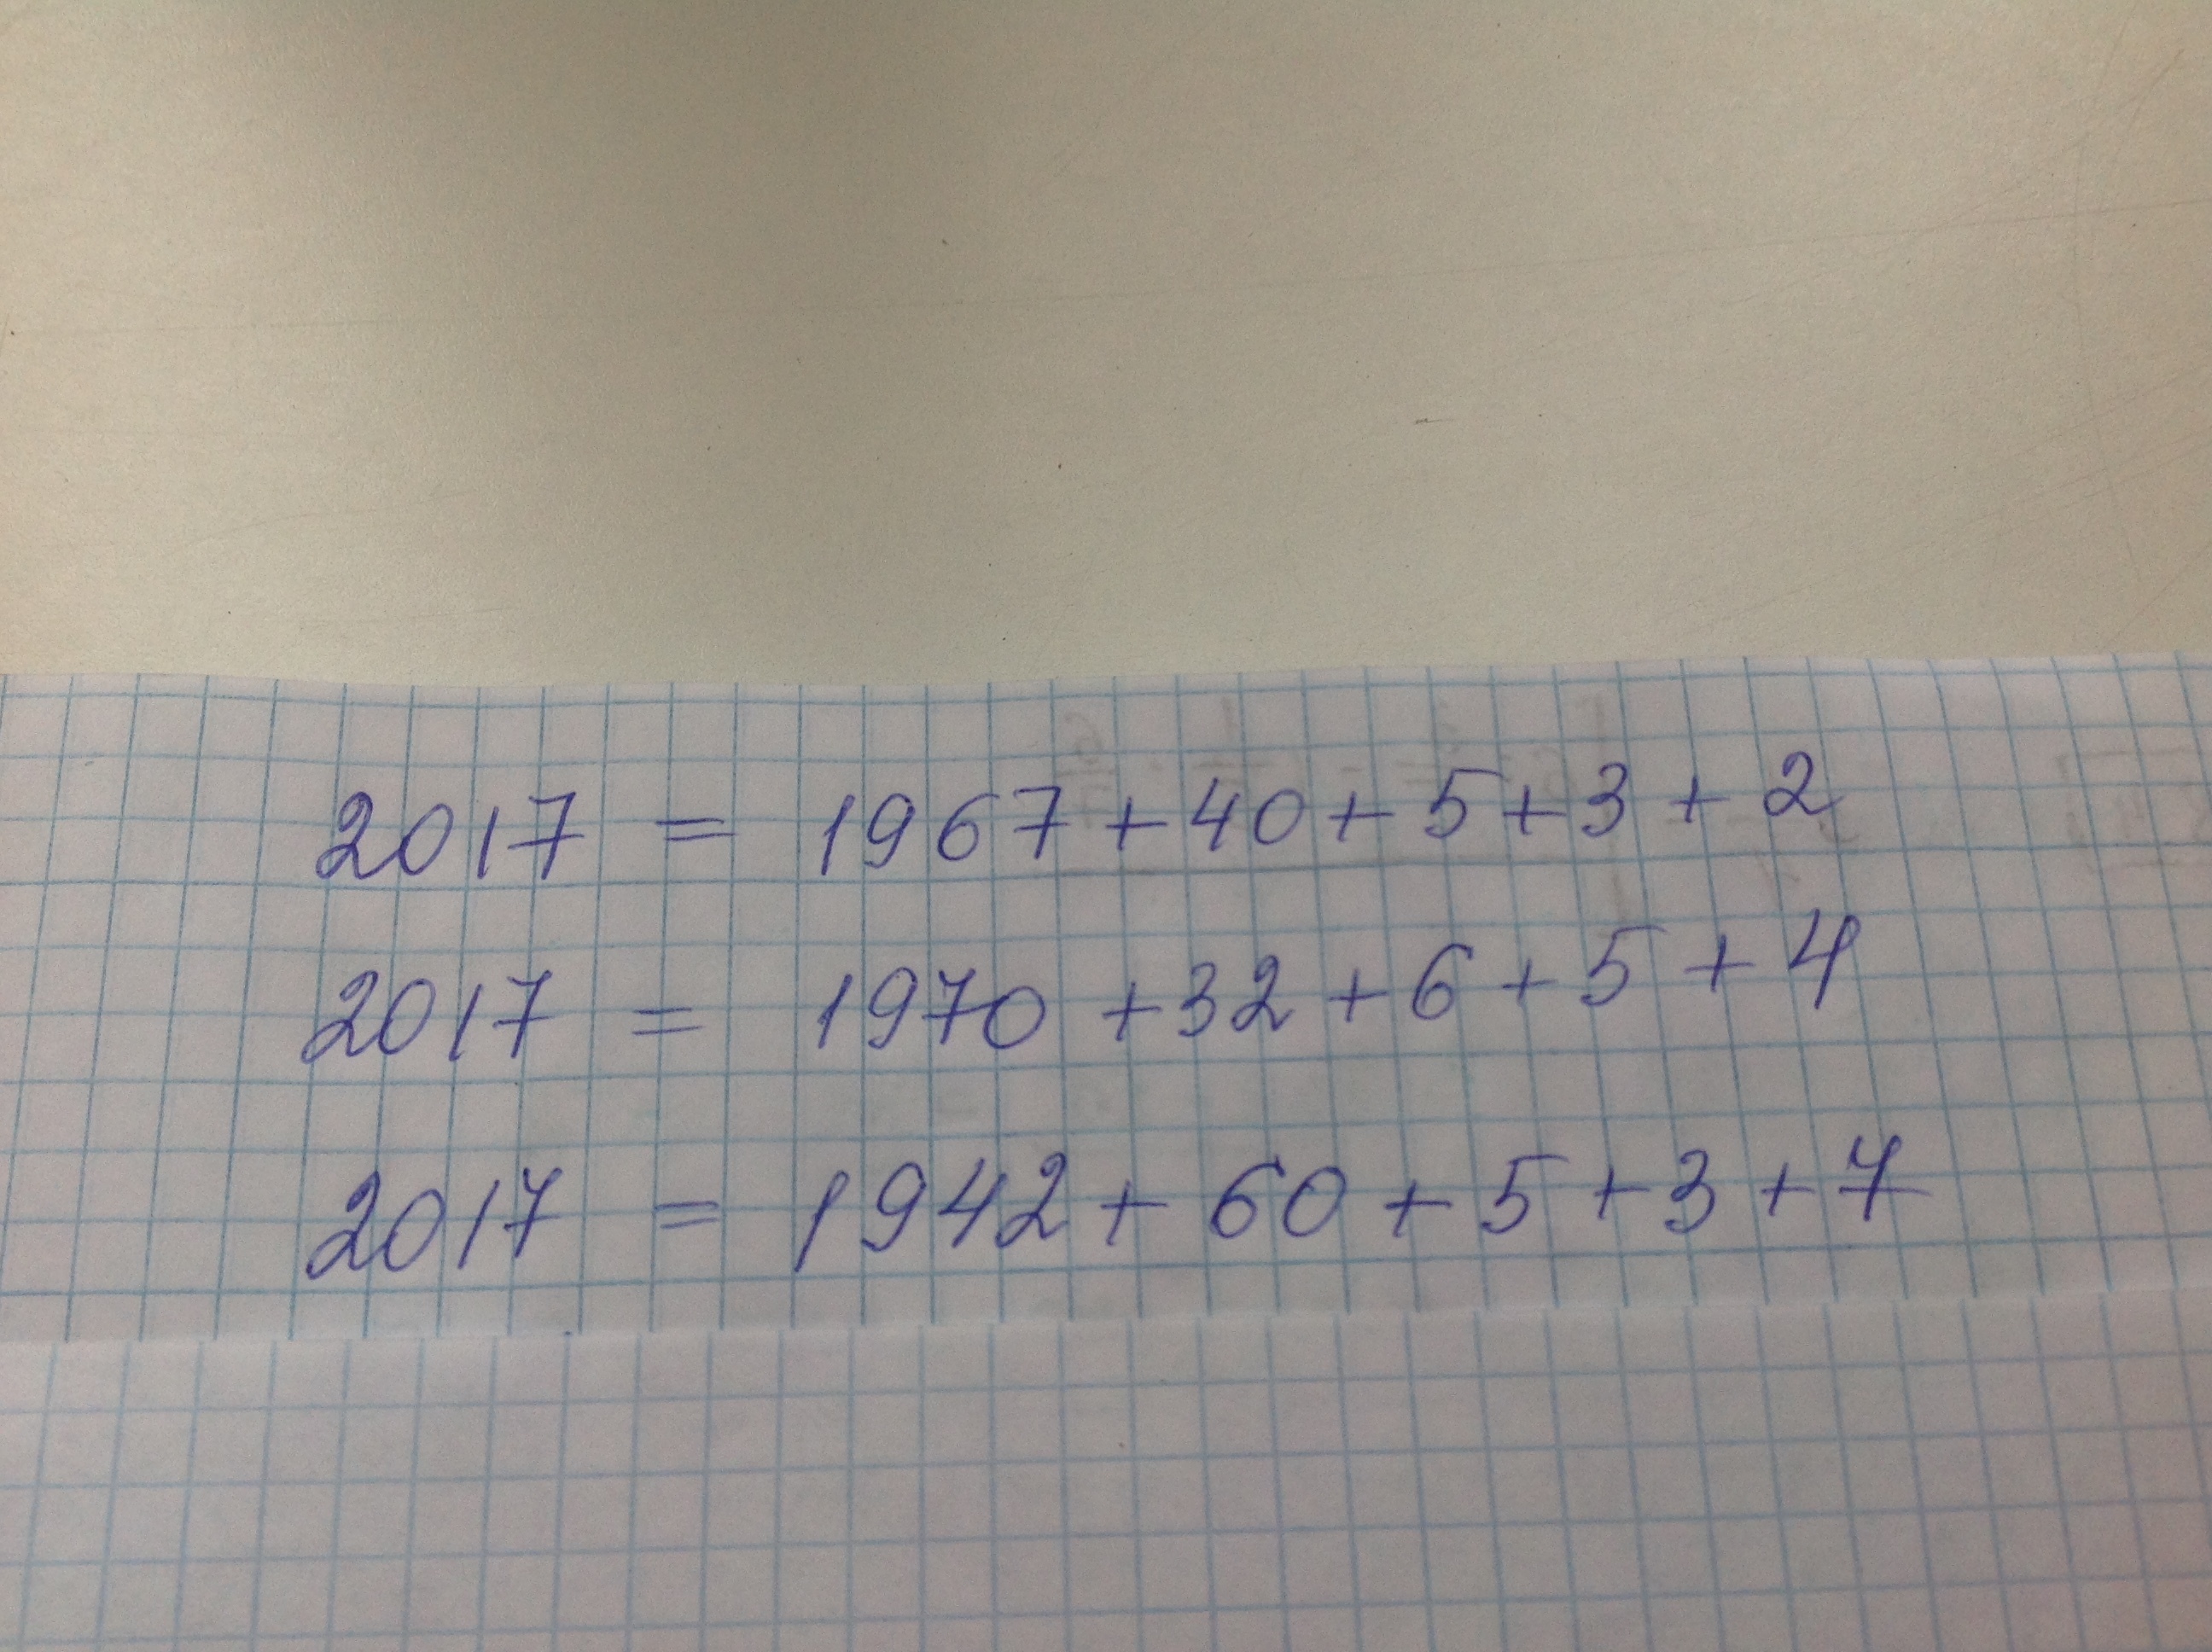 2017 = 1967 + 40 + 5 + 3 + 2
2017 = 1970 + 32 + 6 + 5 + 4
2017 = 1942 + 60 + 5 + 3 + 7